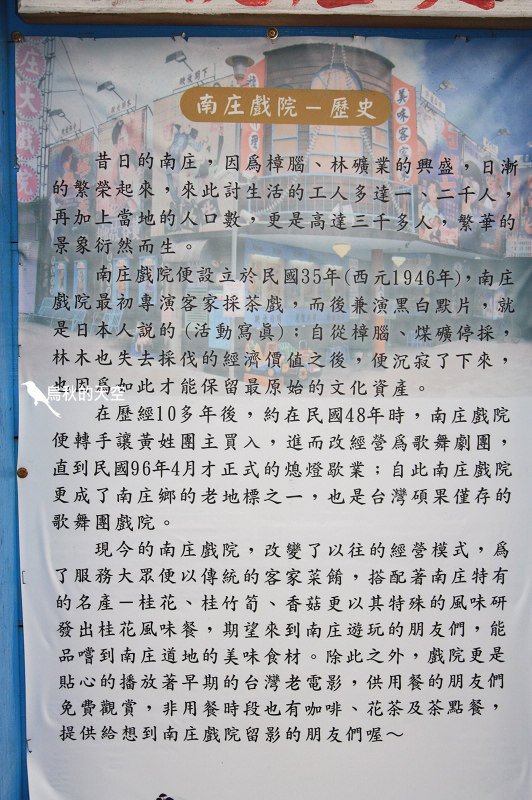 南庄戲院－歷史
昔日的南庄，因為樟腦、林礦業的興盛，日漸
的繁榮起來，來此討生活的工人多達一、二千人，
再加上當地的人口數，更是高達三千多人，繁華的
景象衍然而生。
南庄戲院便設立於民國35年(西元1946年)，南庄
戲院最初專演客家採茶戲，而後兼演黑白默片，就
是日本人說的 (活動寫真)；自從樟腦、煤礦停採，
林木也失去採伐的經濟價值之後，便沉寂了下來，
也因為如此才能保留最原始的文化資產。
烏秋的天空
在歷經10多年後，約在民國48年時，南庄戲院
便轉手讓黃姓團主買入，進而改經營為歌舞劇團，
直到民國96年4月才正式的熄燈歇業；自此南庄戲院
更成了南庄鄉的老地標之一，也是台灣碩果僅存的
歌舞團戲院。
現今的南庄戲院，改變了以往的經營模式，為
了服務大眾便以傳統的客家菜餚，搭配著南庄特有
的名產－桂花、桂竹筍、香菇更以其特殊的風味研
發出桂花風味餐，期望來到南庄遊玩的朋友們，能
品嚐到南庄道地的美味食材。除此之外，戲院更是
貼心的播放著早期的台灣老電影，供用餐的朋友們
免費觀賞，非用餐時段也有咖啡、花茶及茶點餐，
提供給想到南庄戲院留影的朋友們喔～
庄大戲院
美味客家